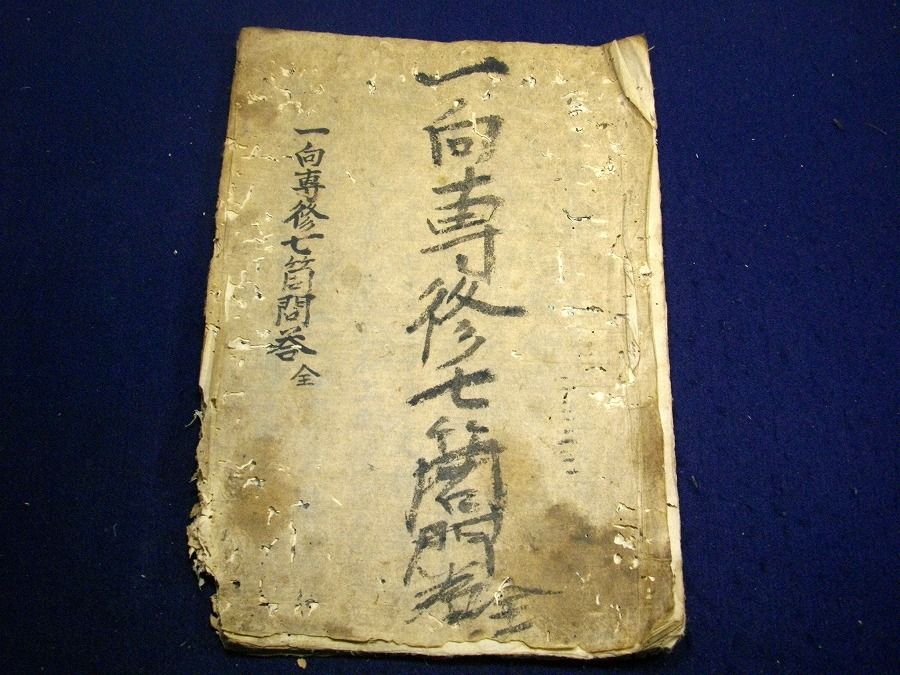 一向専修七箇問答全
一向専修七箇問答 全